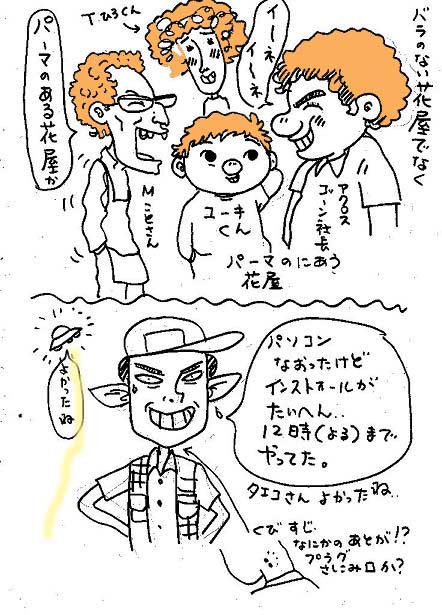 バラのない花屋でなく
イーネ
イーネ
T.ひろくん
パーマのある花屋が
Mことさん
ユーキ
くん
アクロス
ゴーン社長
パーマのにあう
花屋
よかったね
パソコン
なおったけど
インストールが
たいへん..
12時(よる)まで
やってた。
タエコさん よかったね..
くびすじ.
なにかのあとが!?
プラグ
さしこみ口か?